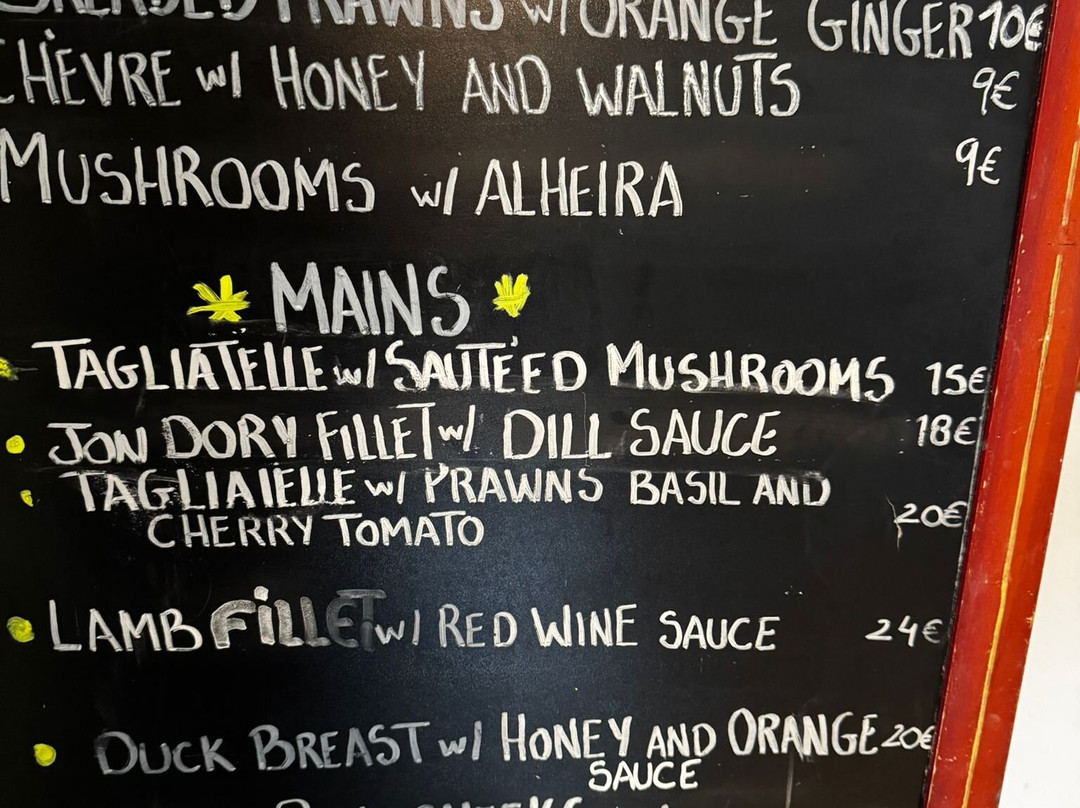 PRAWNS w/ ORANGE GINGER 10€
CHÈVRE w/ HONEY AND WALNUTS 9€
MUSHROOMS w/ ALHEIRA 9€
MAINS
TAGLIATELLE w/ SAUTÉED MUSHROOMS 15€
JON DORY FILLET w/ DILL SAUCE 18€
TAGLIATELLE w/ PRAWNS BASIL AND
CHERRY TOMATO 20€
LAMB FILLET w/ RED WINE SAUCE 24€
DUCK BREAST w/ HONEY AND ORANGE 20€
SAUCE